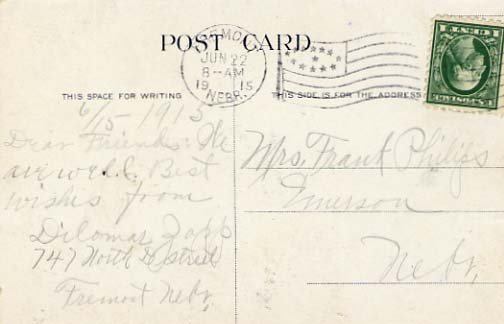 POST CARD
JUN 22
8-AM
19 15
NEBR.
THIS SPACE FOR WRITING
THIS SIDE IS FOR THE ADDRESS
6/15 1915
Dear Friends: We
are well. Best
wishes from
Dilomar Zapp
747 North D street
Fremont Nebr,
Mrs. Frank Philips
Emerson
Nebr,